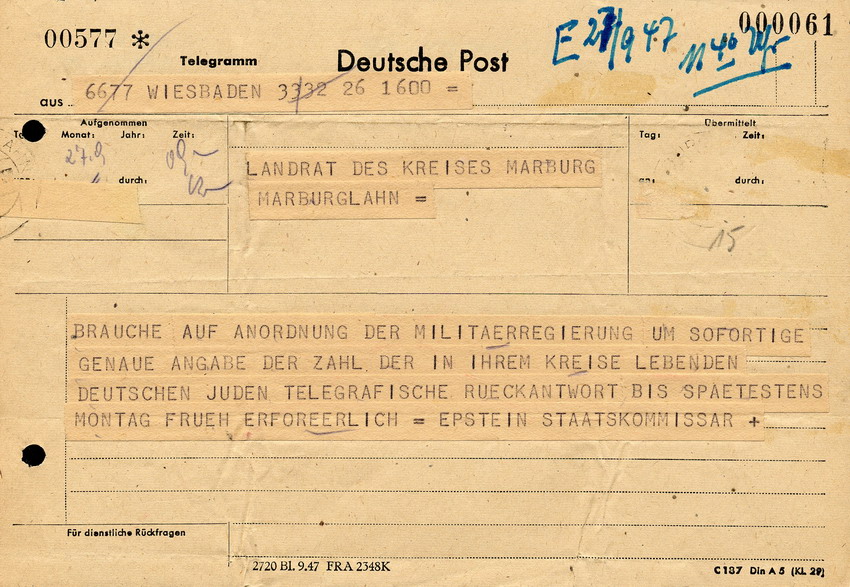 00577 *
000061
E 27/9 47
11 40 Uhr
Telegramm
Deutsche Post
aus 6677 WIESBADEN 3332 26 1600 =
Aufgenommen
Monat: Jahr: Zeit:
27.9
durch:
Übermittelt
Tag: Zeit:
durch:
LANDRAT DES KREISES MARBURG
MARBURGLAHN =
15
BRAUCHE AUF ANORDNUNG DER MILITAERREGIERUNG UM SOFORTIGE
GENAUE ANGABE DER ZAHL DER IN IHREM KREISE LEBENDEN
DEUTSCHEN JUDEN TELEGRAFISCHE RUECKANTWORT BIS SPAETESTENS
MONTAG FRUEH ERFOREERLICH = EPSTEIN STAATSKOMMISSAR +
Für dienstliche Rückfragen
2720 BI. 9.47 FRA 2348K
C 187 Din A 5 (KL. 29)